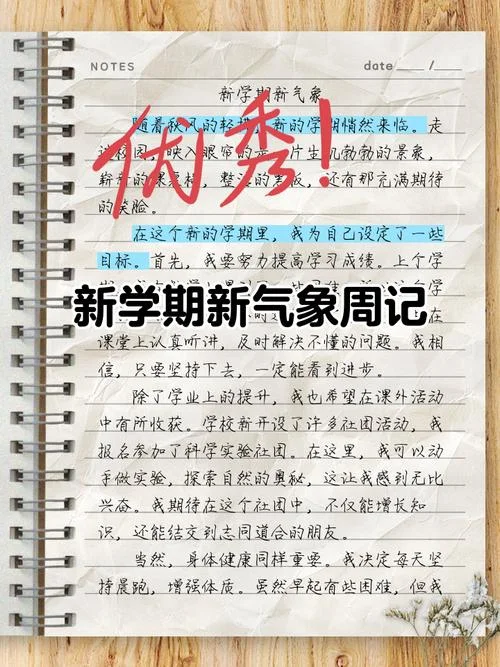 NOTES
date ___ / ___
新学期新气象
优秀!
随着秋风的轻拂,新的学期悄然来临。走
进校园,映入眼帘的是一片生机勃勃的景象,
崭新的课桌椅,整洁的黑板,还有那充满期待
的笑脸。
在这个新的学期里,我为自己设定了一些
目标。首先,我要努力提高学习成绩。上个学
新学期新气象周记
课堂上认真听讲,及时解决不懂的问题。我相
信,只要坚持下去,一定能看到进步。
除了学业上的提升,我也希望在课外活动
中有所收获。学校新开设了许多社团活动,我
报名参加了科学实验社团。在这里,我可以动
手做实验,探索自然的奥秘,这让我感到无比
兴奋。我期待在这个社团中,不仅能增长知
识,还能结交到志同道合的朋友。
当然,身体健康同样重要。我决定每天坚
持晨跑,增强体质。虽然早起有些困难,但我